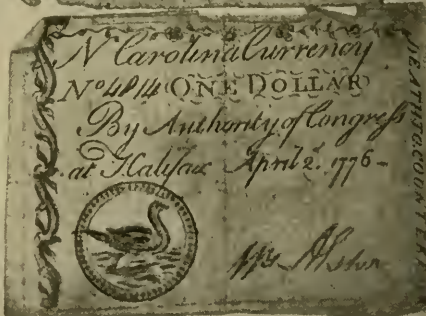 N Carolina Currency
No 4814 ONE DOLLAR
By Authority of Congress
at Halifax April 2d. 1776 -
DEATH TO COUNTERF